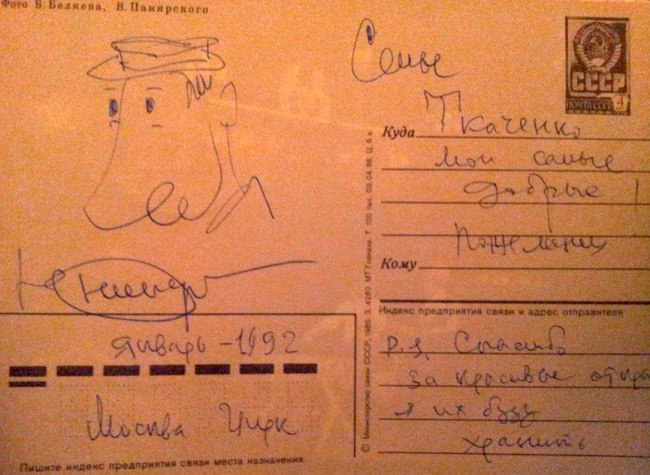 Фото Б. Беляева, В. Панярского
СССР
ПОЧТА СССР 4
Семье
Ткаченко
Куда
мои самые
добрые!
пожелания
Кому
Индекс предприятия связи и адрес отправителя
Январь - 1992
Москва Цирк
P.S. Спасибо
за красивые
я их буду
хранить
Пишите индекс предприятия связи места назначения
© Министерство связи СССР, 1986. З. 4280. МТ Гознака. Т. 100 тыс. 09.04.86. Ц. 6 к.